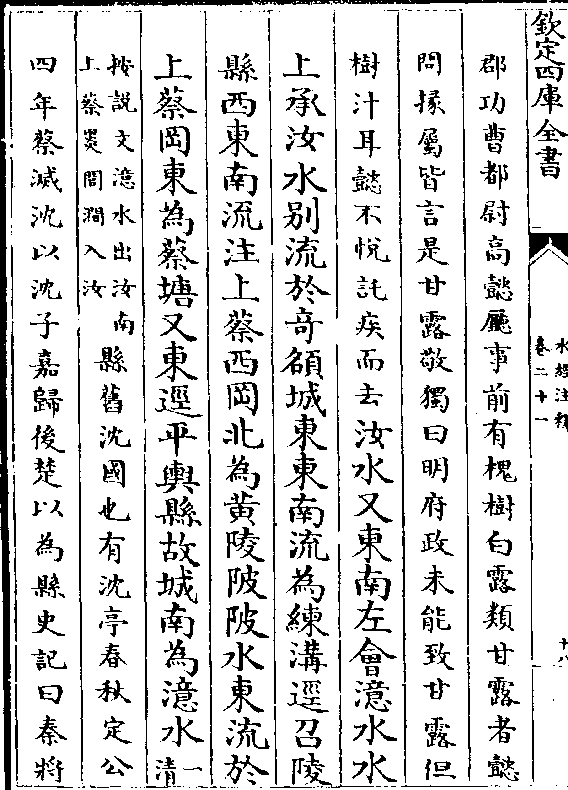 欽定四庫全書
水經注釋
卷二十一
十八
郡功曹都尉高懿㕔事前有槐樹白露類甘露者懿
問掾屬皆言是甘露敬獨曰明府政未能致甘露但
樹汁耳懿不悅託疾而去汝水又東南左會澺水水
上承汝水别流於奇頟城東東南流為練溝逕召陵
縣西東南流注上蔡西岡北為黄陵陂陂水東流於
上蔡岡東為蔡塘又東逕平輿縣故城南為澺水一清
按說文澺水出汝南
上蔡黑閭澗入汝
縣舊沈國也有沈亭春秋定公
四年蔡滅沈以沈子嘉歸後楚以為縣史記曰秦將